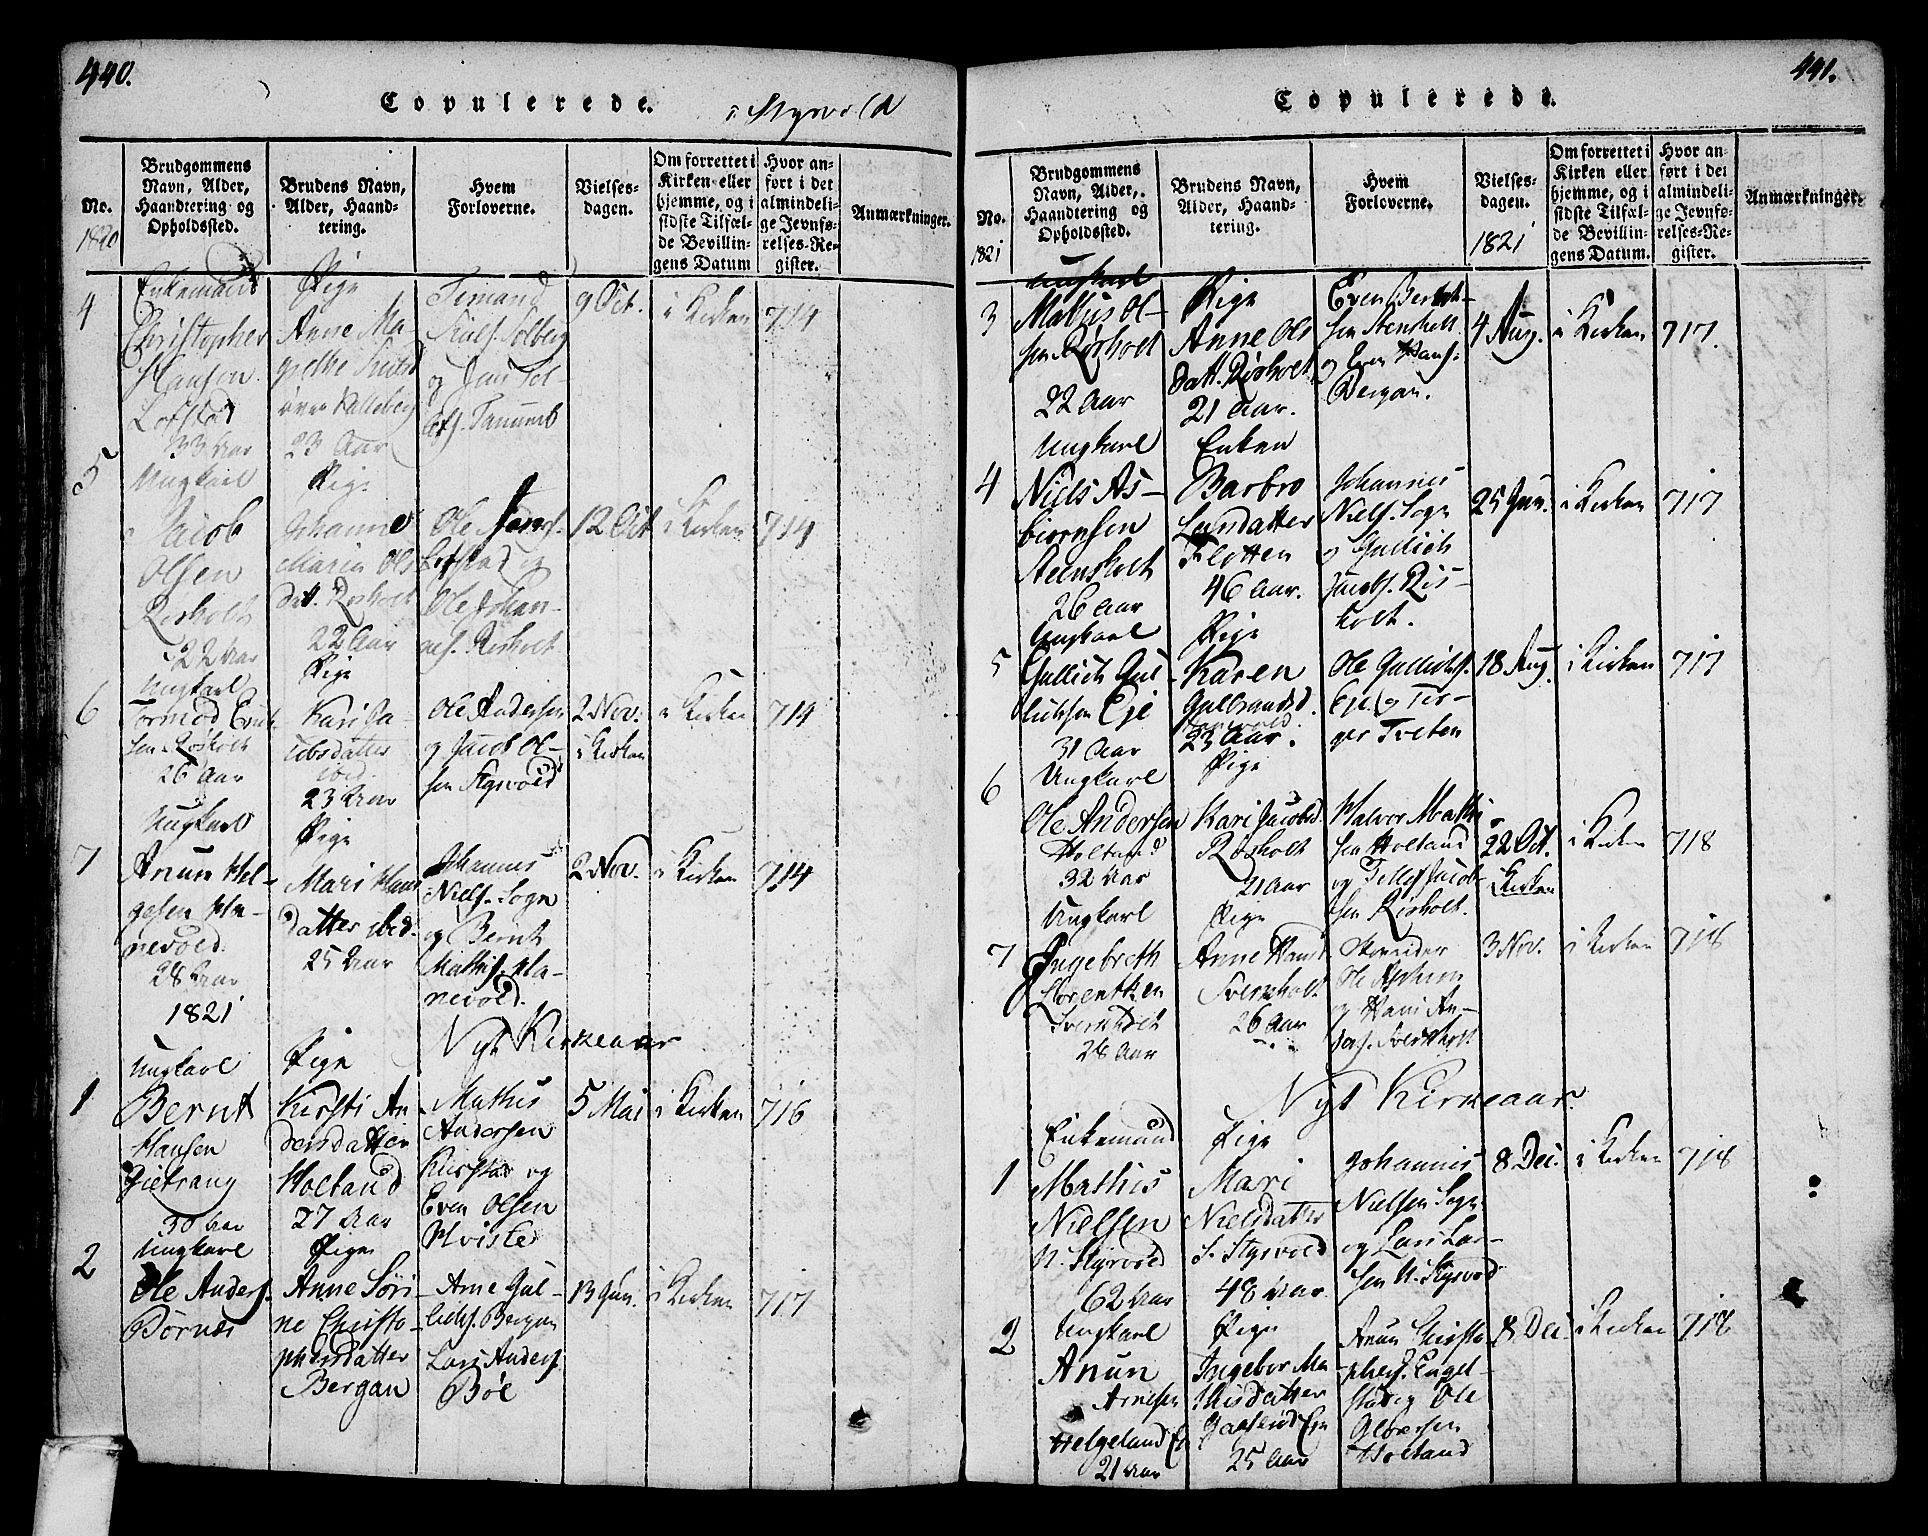 440.
Copulerede.
i Styrvold
No.
1820
Brudgommens
Navn, Alder,
Haandtering og
Opholdssted.
Brudens Navn,
Alder, Haand-
tering.
Hvem
Forloverne.
Vielses-
dagen.
Om forrettet i
Kirken eller
hjemme, og i
sidste Tilfæl-
de Bevillin-
gens Datum
Hvor an-
ført i det
almindeli-
ge Jevnfø-
relses-Re-
gister.
Anmærkninger.
4
Enkemand
Christopher
Hansen
Lofstad
33 Aar
Pige
Anne Ma-
grethe
23 Aar
Solberg
og
9 Oct.
i Kirken
714
5
Ungkarl
Jacob
Olsen
Risholt
22 Aar
Pige
Johanne
Maria Ols
datt. Risholt
22 Aar
Ole
Lofstad og
Ole Johan-
nes. Risholt
12 Oct
i Kirken
714
6
Ungkarl
Tormod
sen Risholt
26 Aar
Pige
Kari Ja-
cobsdatter
ibid.
23 Aar
Ole Andersen
og Jacob Ol-
sen Styrvold
2 Nov.
i Kirken
i Kirken
714
7
Ungkarl
Anun Hel-
gesen Ha-
nevold.
28 Aar
Pige
Mari Hans
datter ibid.
25 Aar
Johannes
Niels. Sogn
og Bernt
Mathis. Ha-
nevold.
2 Nov.
i Kirken
714
1821
Nyt Kirkeaar
1
Ungkarl
Bernt
Hansen
Gietrang
30 Aar
Pige
Kirsti An-
dersdatter
Holtand
27 Aar
Mathis
Andersen
og
Even Olsen
Hviste
5 Mai
i Kirken
716
2
Ungkarl
Ole Anders.
Bornes
Pige
Anne Søri-
ne Christo-
phersdatter
Bergan
Arne Gul-
lichs. Bergan
Lars Anders.
Bøe
13 Jun.
i Kirken
717
441.
Copulerede.
No.
1821
Brudgommens
Navn, Alder,
Haandtering og
Opholdssted.
Brudens Navn,
Alder, Haand-
tering.
Hvem
Forloverne.
Vielses-
dagen.
1821
Om forrettet i
Kirken eller
hjemme, og i
sidste Tilfæl-
de Bevillin-
gens Datum.
Hvor an-
ført i det
almindeli-
ge Jevnfø-
relses-Re-
gister.
Anmærkninger.
3
Ungkarl
Mathis Ol-
sen Risholt
22 Aar
Pige
Anne Ols
datt. Risholt
21 Aar.
Even Bernt-
sen Stensholt
og Even Hans.
Bergan.
4 Aug.
i Kirken
717.
4
Ungkarl
Niels As-
biørnsen
Steensholt
26 Aar
Enken
Barbro
Larsdatter
Flotten
46 Aar.
Johannes
Niels. Sogn
og Gullich
Jacobs. Ris-
holt.
25 Jun.
i Kirken
717
5
Ungkarl
Gullich Gul-
lichsen Eje
31 Aar
Pige
Karen
Gulbrandsd.
23 Aar.
Ole Gullichs.
Eje og Tor-
ger Tveten
18 Aug.
i Kirken
717
6
Ungkarl
Ole Andersen
Holtand
32 Aar
Pige
Kari Jacobsd.
Risholt
21 Aar
Halvor Mathi-
sen Holtand
og Tellef Jacob-
sen Risholt.
22 Oct.
i Kirken
i Kirken
718
7
Ungkarl
Ingebreth
Lorentsen
Sverkholt
28 Aar
Pige
Anne Hansd
Sverkholt
26 Aar
Skrædder
Ole
og Hans An-
ders. Sverkholt
3 Nov.
i Kirken
718
Nyt Kirkeaar.
1
Enkemand
Mathis
Nielsen
N. Styrvold
62 Aar
Pige
Mari
Nielsdatter
S. Styrvold
48 Aar.
Johannes
Nielsen Sogn
og Lars Lar-
sen N. Styrvold
8 Dec.
i Kirken
718
2
Ungkarl
Anun
Arnesen
Helgeland Ej
21 Aar
Pige
Ingebor Ma-
thisdatter
Gaaslud Eje
25 Aar
Anun Christo-
phers. Engel-
stad og Ole
Holtand
8 Dec
i Kirken
718